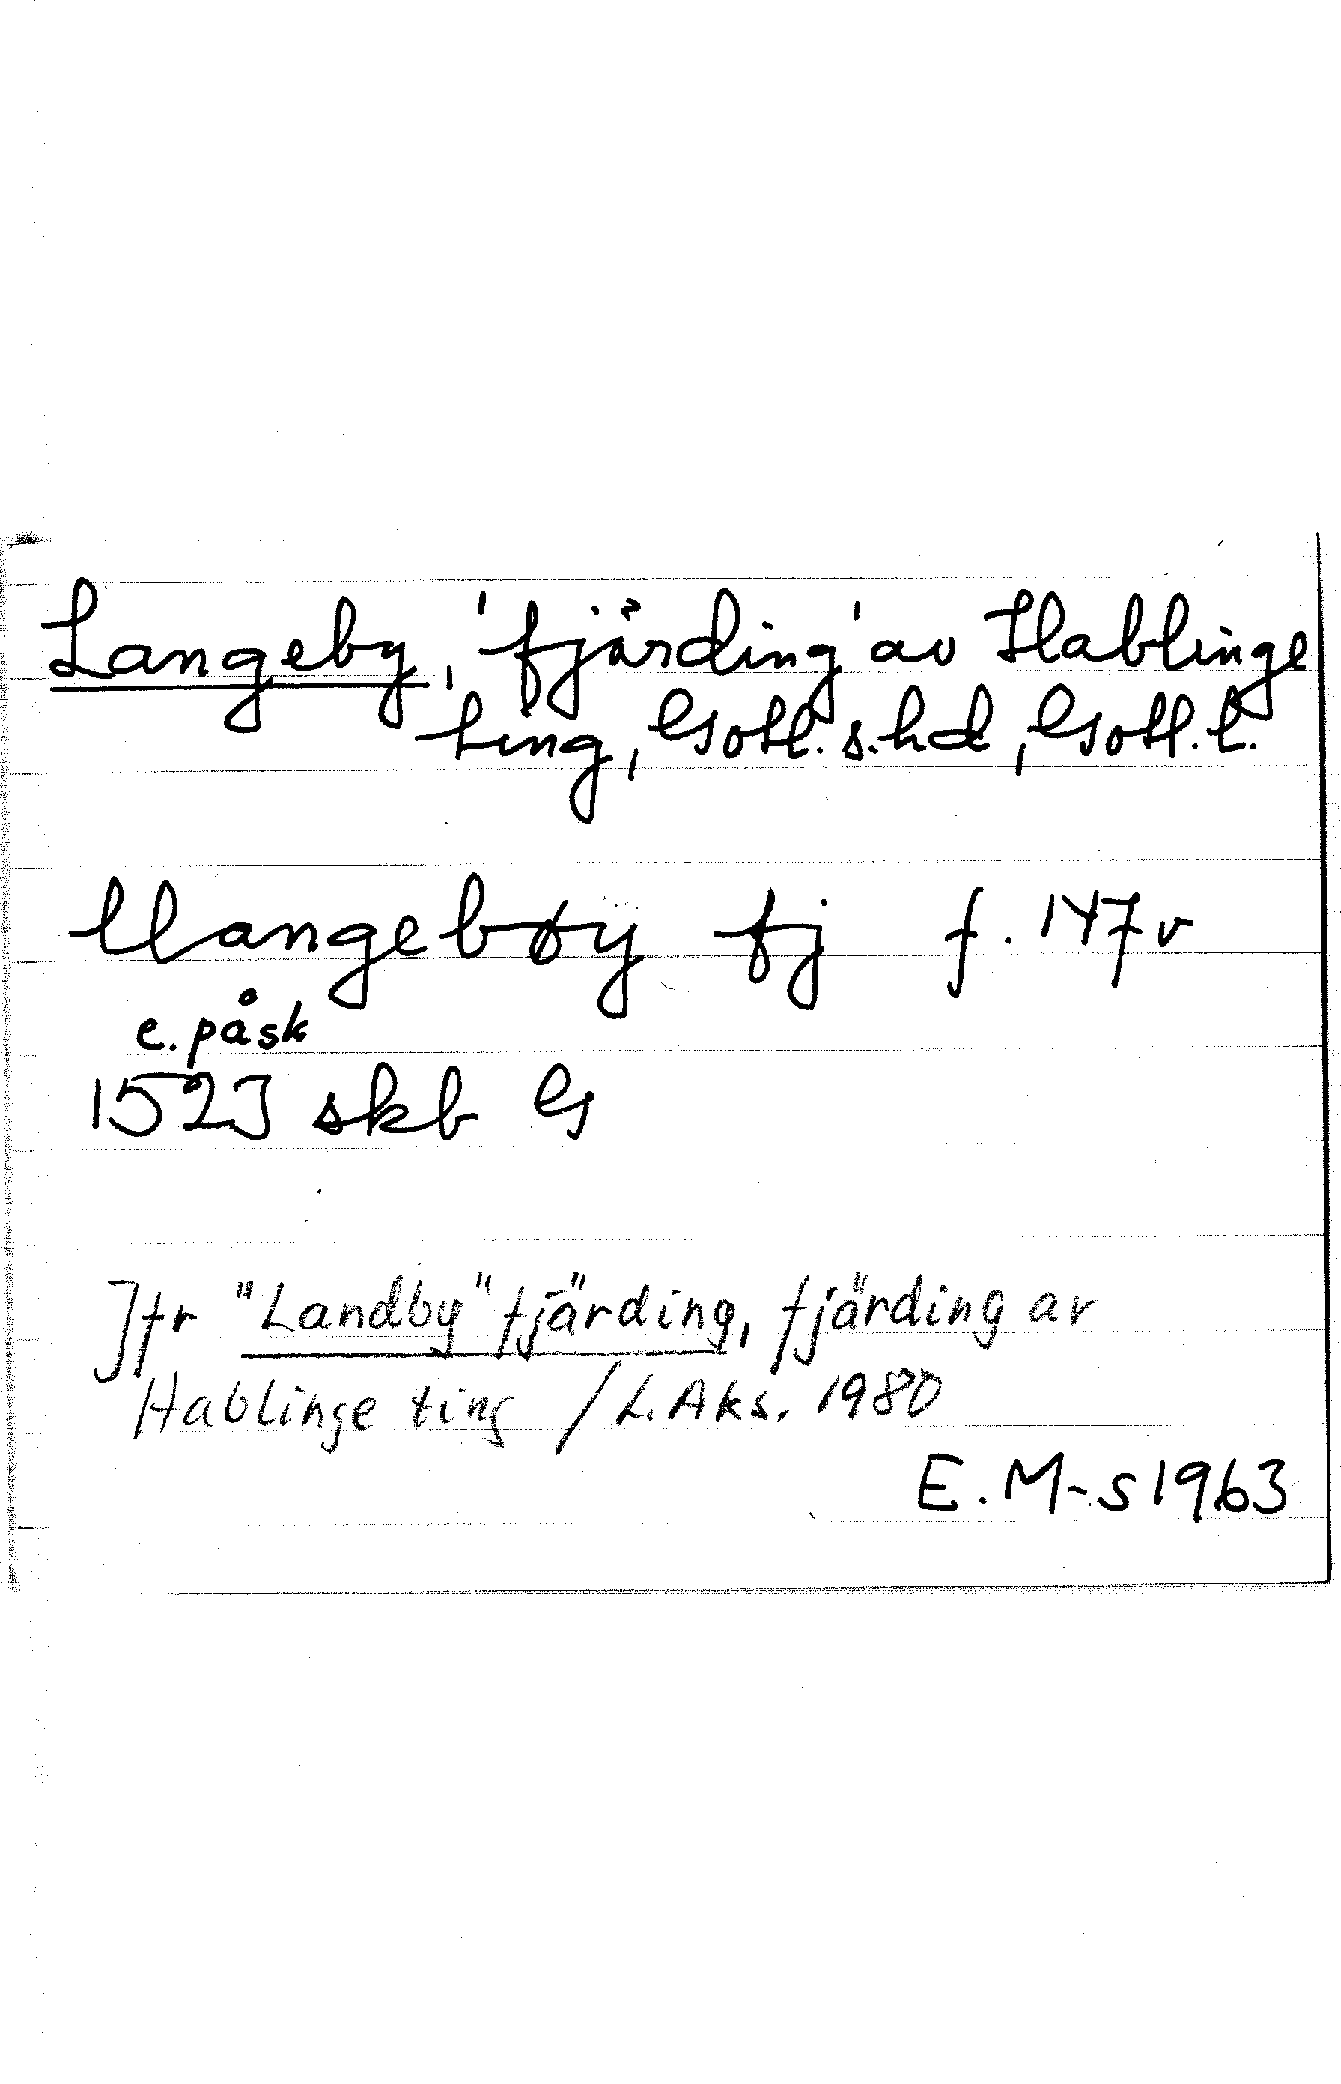 Langeby, 'fjärding' av Hablinge
ting, Gotl. s. hd, Gotl. l.
llangebøy fj f. 147v
e. påsk
1523 skb G
Jfr "Landby" fjärding, fjärding av
Hablinge ting / L. Aks. 1980
E. M-s 1963